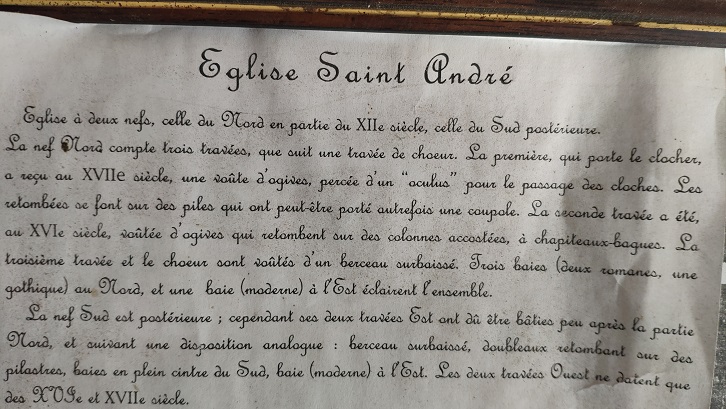 Eglise Saint André
Eglise à deux nefs, celle du Nord en partie du XIIe siècle, celle du Sud postérieure.
La nef Nord compte trois travées, que suit une travée de choeur. La première, qui porte le clocher,
a reçu au XVIIe siècle, une voûte d'ogives, percée d'un "oculus" pour le passage des cloches. Les
retombées se font sur des piles qui ont peut-être porté autrefois une coupole. La seconde travée a été,
au XVIe siècle, voûtée d'ogives qui retombent sur des colonnes accostées, à chapiteaux-bagues. La
troisième travée et le choeur sont voûtés d'un berceau surbaissé. Trois baies (deux romanes, une
gothique) au Nord, et une baie (moderne) à l'Est éclairent l'ensemble.
La nef Sud est postérieure ; cependant ses deux travées Est ont dû être bâties peu après la partie
Nord, et suivant une disposition analogue : berceau surbaissé, doubleaux retombant sur des
pilastres, baies en plein cintre du Sud, baie (moderne) à l'Est. Les deux travées Ouest ne datent que
des XVIe et XVIIe siècle.